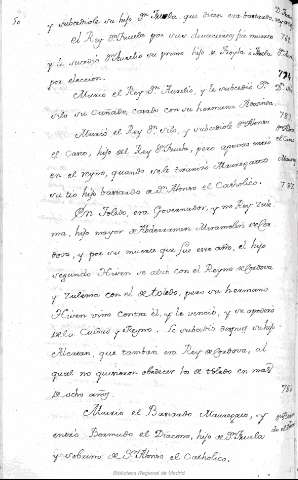 y subcediole su hijo Dn. Fruela, que vien era bastardo,
el Rey Dn. Fruela por sus
y le subcedio Dn. Aurelio su primo hijo de Froyla
por eleccion.
774
Murio el Rey Dn. Aurelio, y le subcedio Dn.
Silo su Cuñado, casado con su hermana
783
Murió el Rey Dn. Silo, y subcediole Dn. Alonso
el Casto, hijo del Rey Dn. Fruela, pero apenas
en el reyno, quando se le Mauregato
su tio hijo bastardo de Dn. Alonso el Catholico.
En Toledo, era Governador, y Rey
ma, hijo mayor de Abderraman Miramolin de Cor
dova, y por su muerte que fue este año, el hijo
segundo Hixen se alzo con el Reyno de Cordova
y Zulema con el de toledo, pero su hermano
Hixen vino contra él, y le venció, y se apoderó
de la Ciudad y Reyno. Le subcedio despues su hijo
Alcatan, que tambien era Rey de Cordova, al
qual no quisieron obedecer los de toledo en mas
de ocho años.
Murio el Bastardo Mauregato, y
entró Bermudo el Diacono, hijo de Dn. Fruela
y sobrino de Dn. Alonso el Catholico.
Biblioteca Regional de Madrid